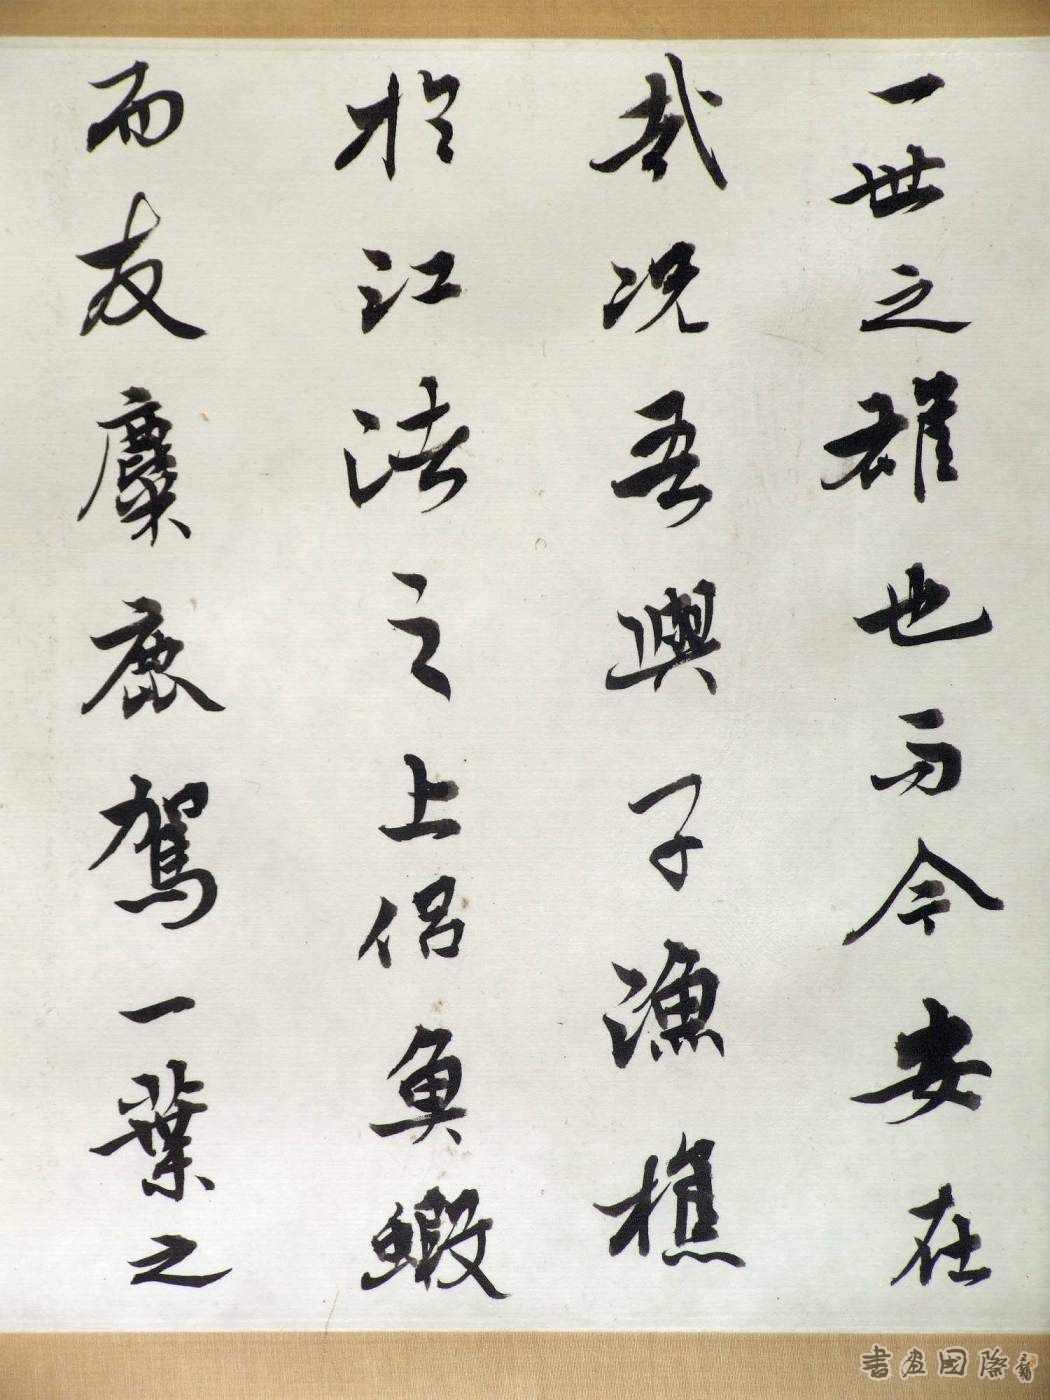 一世之雄也而今安在
哉况吾與子漁樵
於江渚之上侶魚蝦
而友麋鹿駕一葉之
書画國際